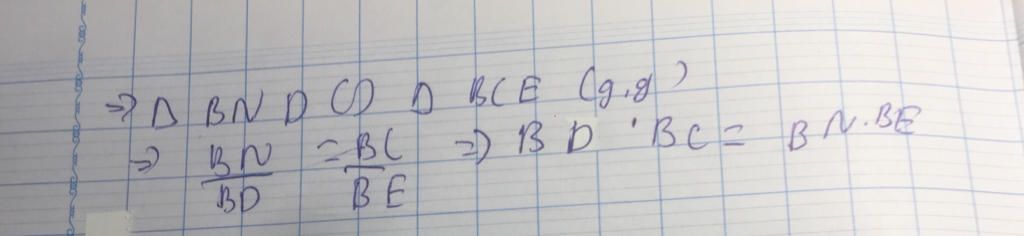 => Δ BND ∽ Δ BCE (g.g)
=> BN/BD = BC/BE => BD . BC = BN.BE